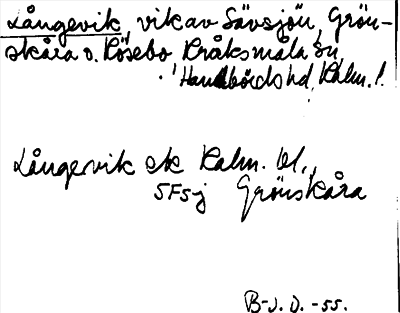 Långevik, vik av Sävsjön, Grön-
skåra o. Rösebo Kråksmåla sn,
Handbörds hd, Kalm. l.
Långevik ek Kalm. bl.,
SFSj Grönskåra
B-J. O. -55.